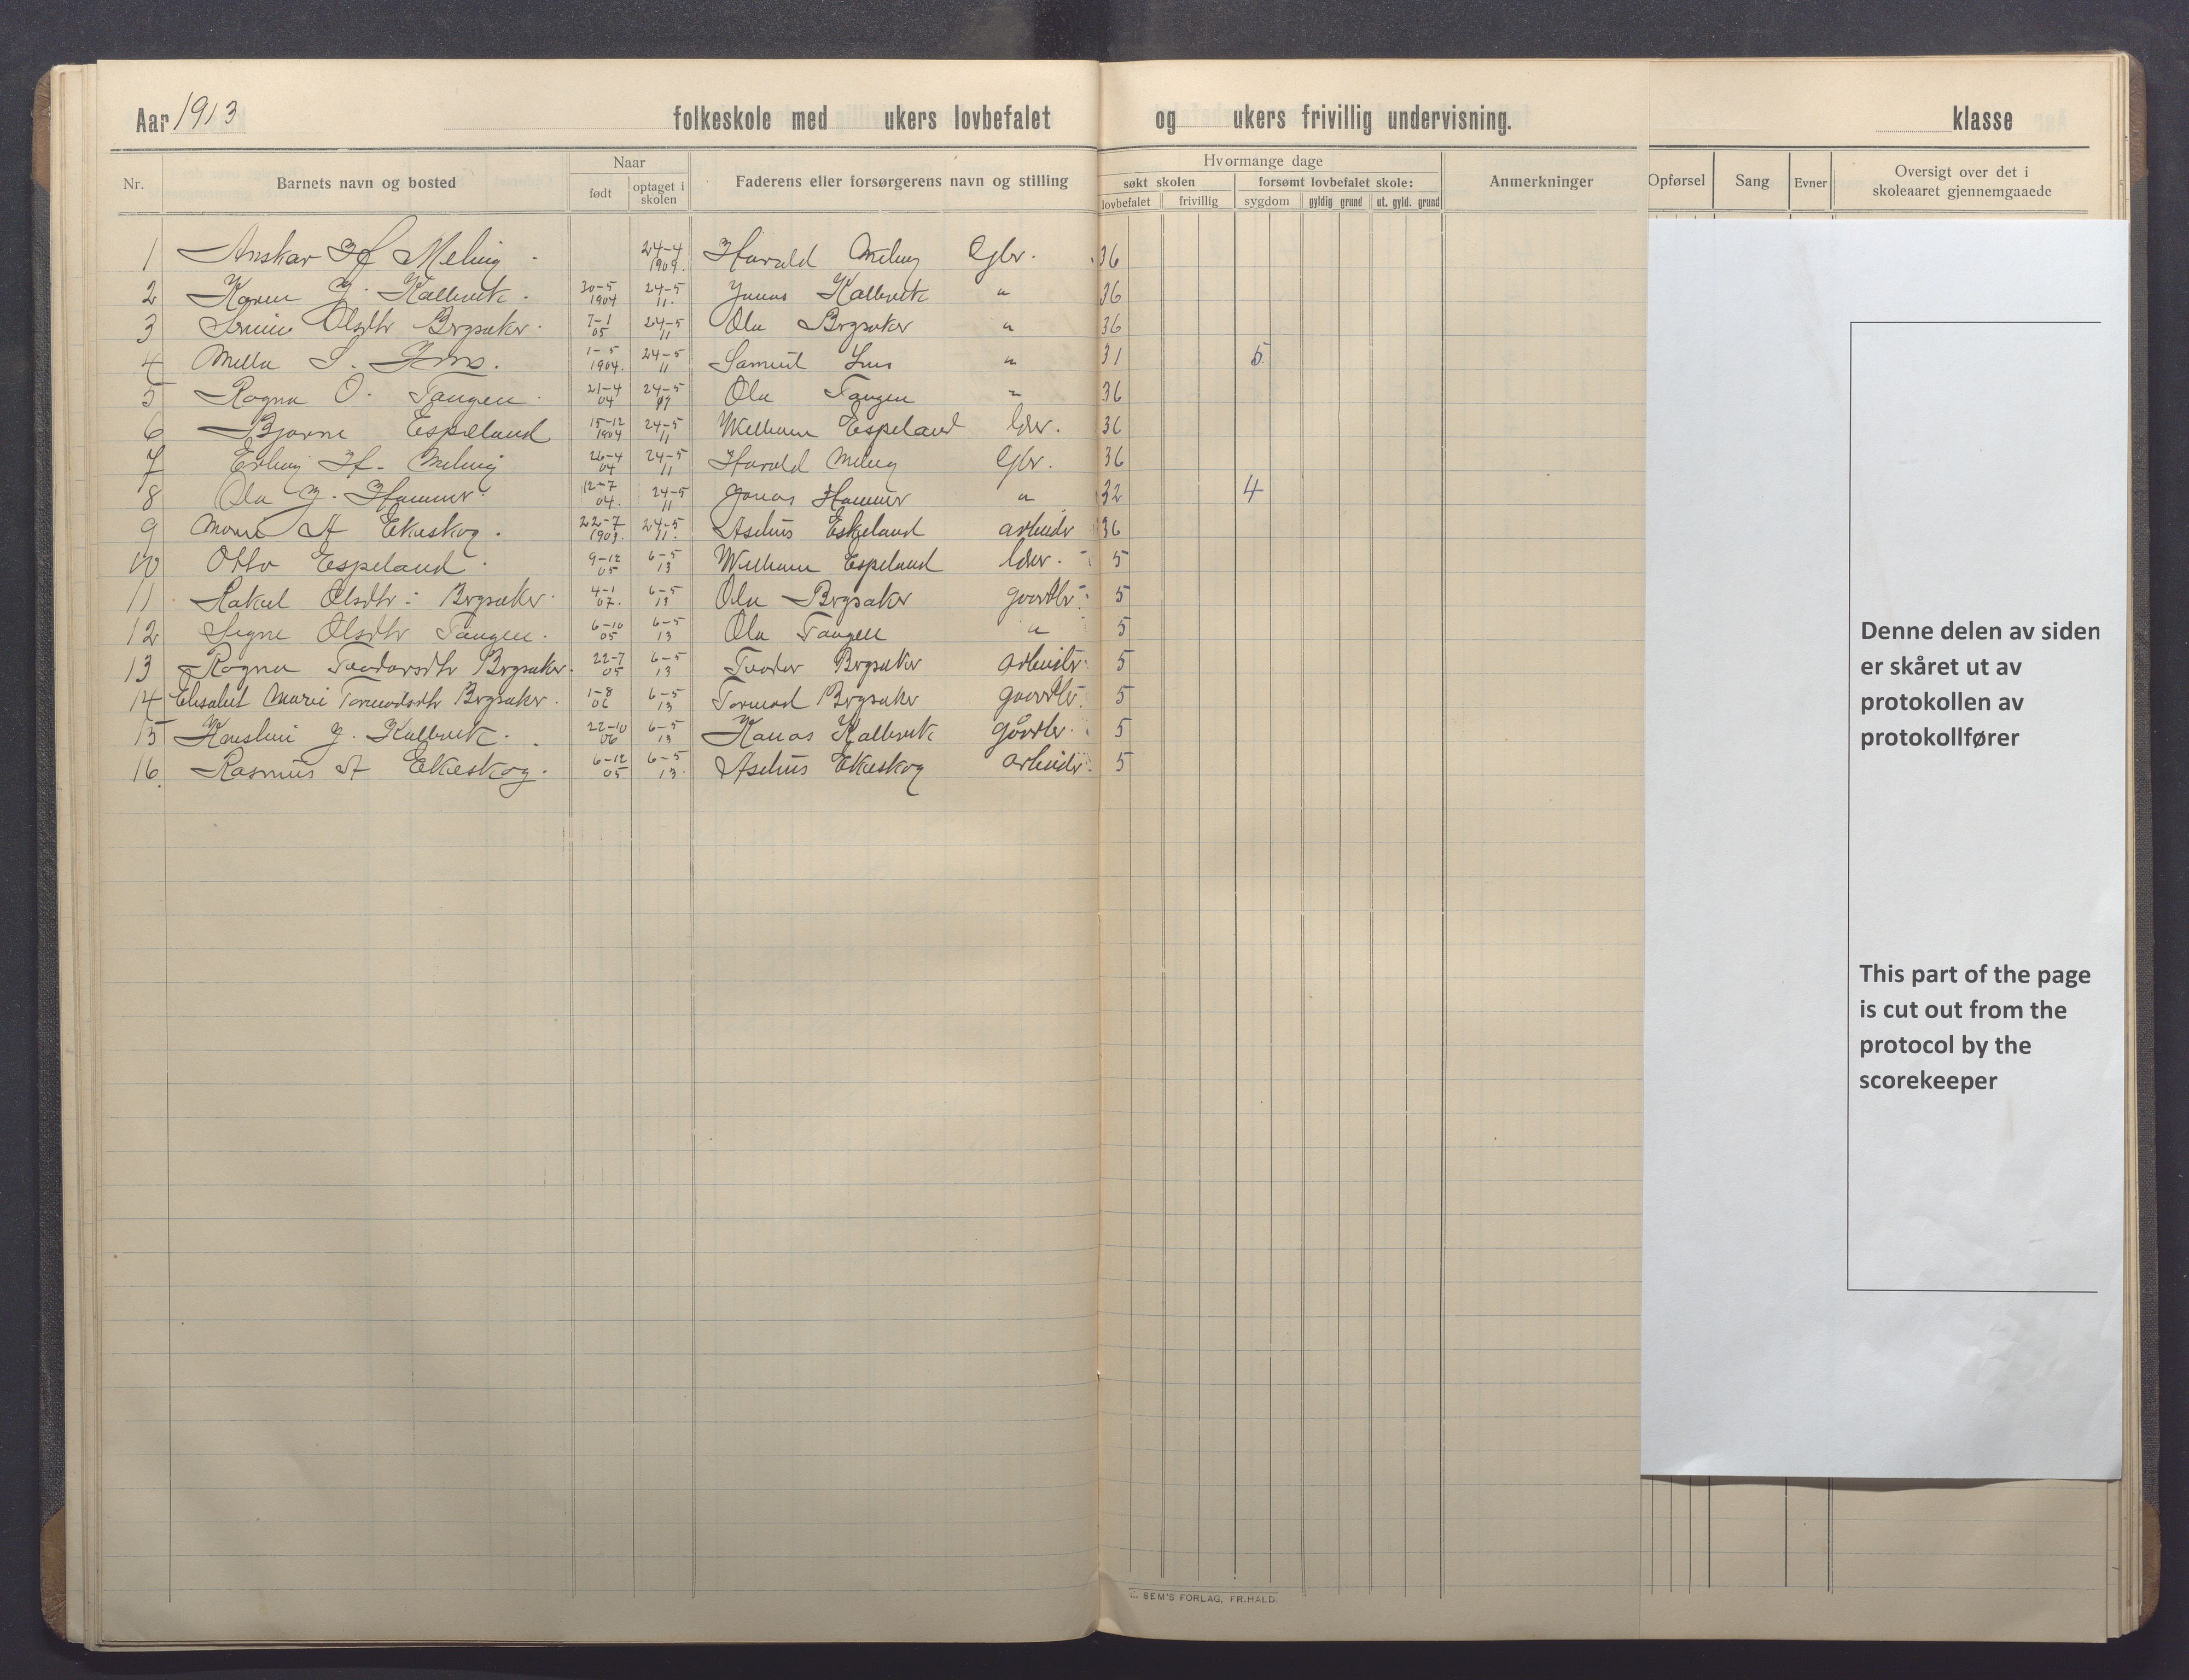 Aar 1913 folkeskole med ukers lovbefalet og ukers frivillig undervisning. klasse
Nr. Barnets navn og bosted Naar født optaget i skolen Faderens eller forsørgerens navn og stilling Hvormange dage søkt skolen lovbefalet frivillig forsømt lovbefalet skole: sygdom gyldig grund ut. gyld. grund Anmerkninger Opførsel Sang Evner Oversigt over det i skoleaaret gjennemgaaede
1 Anskar H Meling 24-4 1909. Harald Meling Gbr. 36
2 Karen J. Kallevik. 30-5 1904 24-5 11. Jonas Kallevik " 36
3 Olsdtr Bogsaker. 7-1 05 24-5 11 Ola Bogsaker " 36
4 Mella S. 1-5 1904. 24-5 11 Samuel " 31 5
5 Ragna O. Tangen. 21-4 04 24-5 Ola Tangen " 36
6 Bjarne Espeland 15-12 1904 24-5 11 Wilhelm Espeland lærer. 36
7 Erling H. Meling 26-4 04 24-5 11 Harald Meling Gbr. 36
8 Ola J. Hammer. 12-7 04. 24-5 11 Jonas Hammer " 32 4
9 A Ekeskog. 22-7 1903. 24-5 11. Eskeland arbeider 36
10 Otto Espeland. 9-12 05 6-5 13 Wilhelm Espeland lærer. 5
11 Rakel Olsdtr: Bogsaker. 4-1 07. 6-5 13 Ola Bogsaker 5
12 Signe Olsdtr Tangen. 6-10 05 6-5 13 Ola Tangen " 5
13 Ragna Teodorsdtr Bogsaker. 22-7 05 6-5 13 Teodor Bogsaker arbeider 5
14 Elisabet Marie Tormodsdtr Bogsaker. 1-8 06 6-5 13 Tormod Bogsaker 5
15 J. Kallevik. 22-10 06 6-5 13 Kallevik 5
16. Rasmus A Ekeskog. 6-12 05 6-5 13. Ekeskog arbeider. 5
Denne delen av siden
er skåret ut av
protokollen av
protokollfører
This part of the page
is cut out from the
protocol by the
scorekeeper
SEM'S FORLAG, FR.HALD.